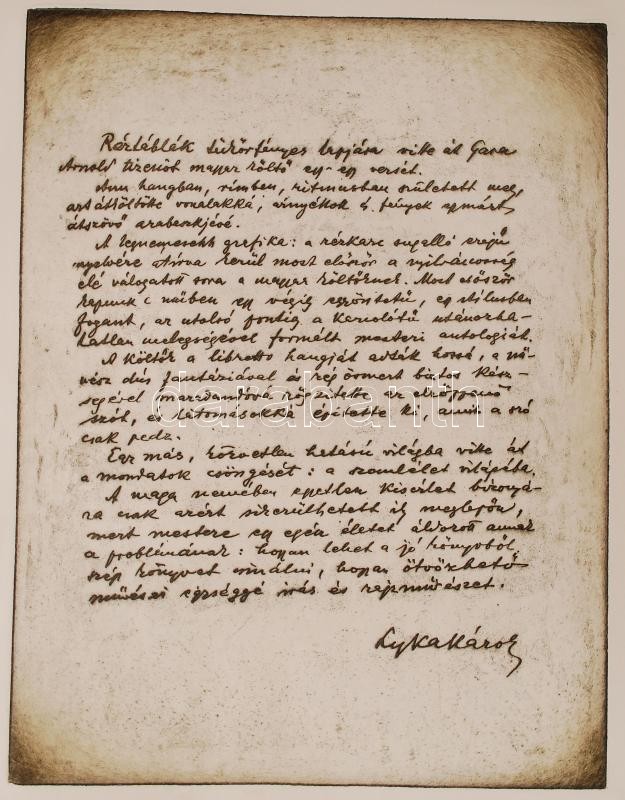 Réztáblák tükörfényes lapjára vitte át Gara
Arnold tizenöt magyar költő egy-egy versét.
Ami hangban, rímben, ritmusban született meg,
azt áttöltötte vonalakká, árnyékok és fények egymást
átszövő arabeszkjévé.
A legnemesebb grafika: a rézkarc sugalló erejű
nyelvére átírva kerül most először a nyilvánosság
elé válogatott sora a magyar költőknek. Most először
kapunk műben egy végig egyöntetű, egy stílusban
fogant, az utolsó pontig a karcolótű utánozha-
tatlan melegségével formált mesteri antologiát.
A költők a libretto hangját adták hozzá, a mű-
vész dús fantáziával és rég ismert biztos kész-
ségével maradandóvá rögzítette az elröppenő
szót, és látomásokká építette ki, amit a szó
csak pedz.
Egy más, közvetlen hatású világba vitte át
a mondatok csöngését: a szemlélet világába.
A maga nemében egyetlen kisérlet bizonyá-
ra csak azért sikerülhetett ily meglepőn,
mert mestere egy egész életet áldozott annak
a problémának: hogyan lehet a jó könyvből
szép könyvet csinálni, hogyan ötvözhető
művészi egységgé írás és rajzművészet.
Lyka Károly
darabanth